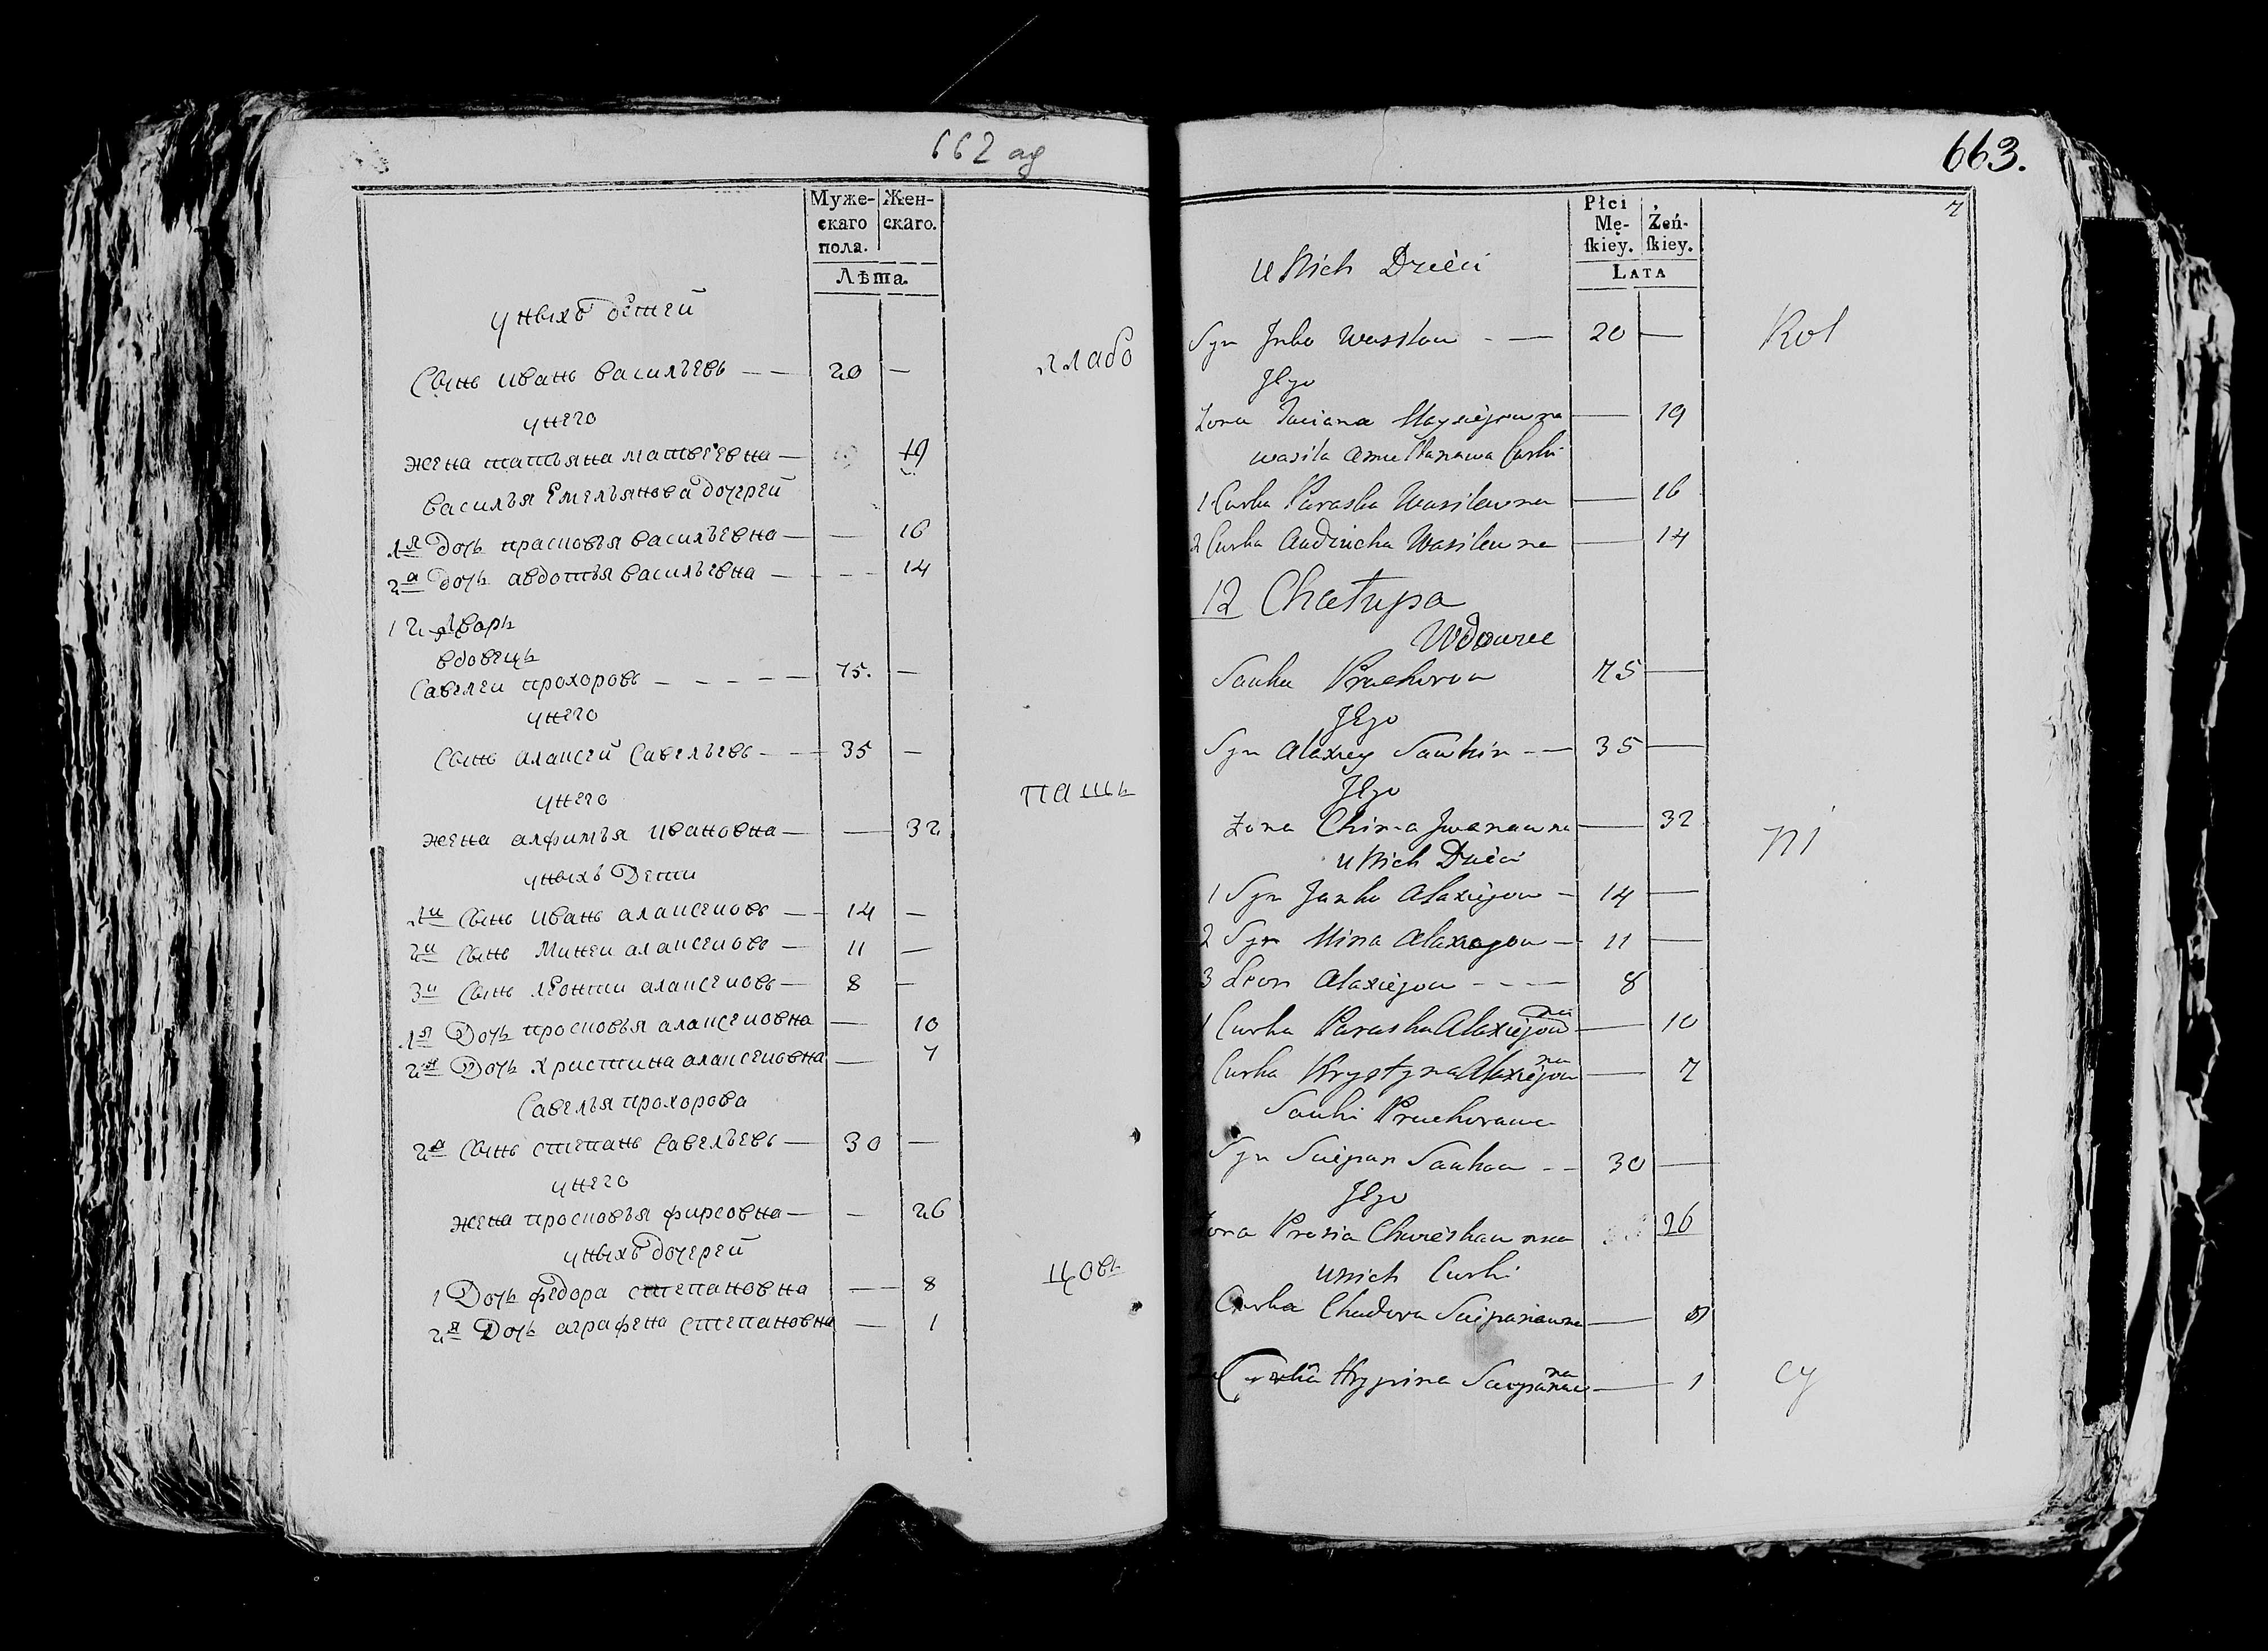 662 об
Муже-
скаго
пола.
Жен-
скаго.
Лѣта.
уныхъ детей
Сынъ иванъ васильевъ — — 20 —
унего
жена татьяна матвѣевна — 19
василья Емельянова дочерей
1я дочь прасковья васильевна — — 16
2а дочь авдотья васильевна — — 14
12 дворъ
вдовецъ
Савелеи прохоровъ — — — — 75. —
унего
Сынъ алаксей Савельевъ — — 35 —
унего
жена алфимья ивановна — — 32
уныхъ Дети
1и Сынъ иванъ алаксеиовъ — — 14 —
2и Сынъ Минеи алаксеиовъ — 11 —
3и Сынъ леонтии алаксеиовъ — 8 —
1я Дочь просковья алаксеиовна — 10
2я Дочь христина алаксеиовна — 7
Савелья прохорова
2и Сынъ степанъ Савельевъ — 30 —
унего
жена просковья фирсовна — — 26
уныхъ дочерей
1 Дочь фѣдора степановна — 8
2я Дочь аграфена степановна — 1
пашъ
цовъ
663.
7
Płci
Mę-
ſkiey.
Żeń-
ſkiey.
LATA
u Nich Dzieci
Syn Janko Wasilow - — 20 —
Jego
Żona Taciana Mayciejowna — 19
Wasila Amullanowa Curki
1 Curka Paraska Wasilewna — 16
2 Curka Audzieicha Wasilewna — 14
12 Chałupa
Wdowiec
Sauka Prachorow 75 —
Jego
Syn Alaxiey Saukin - — 35 —
Jego
Żona Chima Jwanawna — 32
u Nich Dzieci
1 Syn Janko Alaxiejow — 14 —
2 Syn Mina Alaxiejow — 11 —
3 Leon Alaxiejow - - — 8
1 Curka Paraska Alaxiejowna — 10
Curka Krystyna Alaxiejowna — 7
Sauki Prachorawa
Syn Sciepan Saukow - - 30 —
Jego
Żona Prosia 26
u nich Curki
Curka Chadora Sciepanawna — 8
Curka Hrypina Sciepanawna — 1